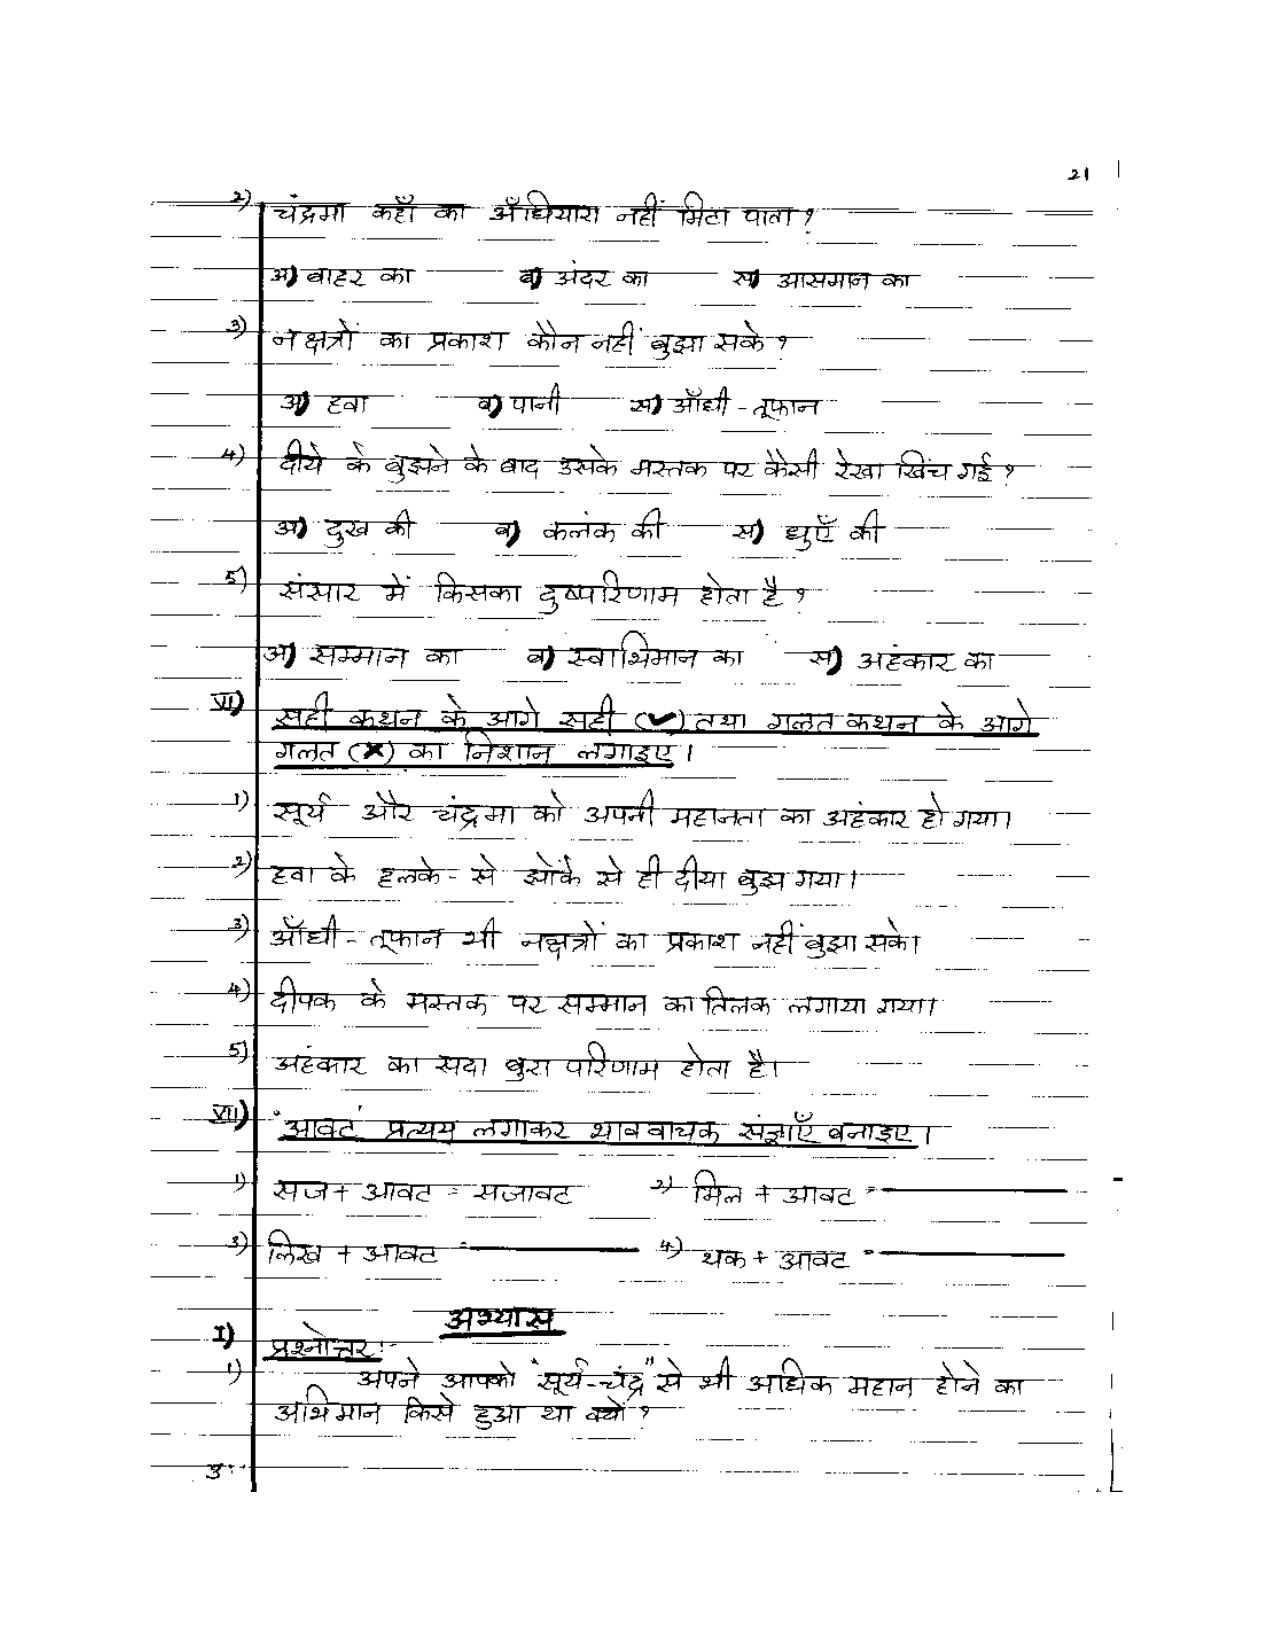 21
2) चंद्रमा कहाँ का अँधियारा नहीं मिटा पाता ?
अ) बाहर का ब) अंदर का स) आसमान का
3) नक्षत्रों का प्रकाश कौन नहीं बुझा सके ?
अ) हवा ब) पानी स) आँधी - तूफान
4) दीये के बुझने के बाद उसके मस्तक पर कैसी रेखा खिंच गई ?
अ) दुख की ब) कलंक की स) धुएँ की
5) संसार में किसका दुष्परिणाम होता है ?
अ) सम्मान का ब) स्वाभिमान का स) अहंकार का
VI) सही कथन के आगे सही (✔) तथा गलत कथन के आगे
गलत (✖) का निशान लगाइए।
1) सूर्य और चंद्रमा को अपनी महानता का अहंकार हो गया।
2) हवा के हलके - से झोंके से ही दीया बुझ गया।
3) आँधी - तूफान भी नक्षत्रों का प्रकाश नहीं बुझा सके।
4) दीपक के मस्तक पर सम्मान का तिलक लगाया गया।
5) अहंकार का सदा बुरा परिणाम होता है।
VII) 'आवट' प्रत्यय लगाकर भाववाचक संज्ञाएँ बनाइए।
1) सज + आवट = सजावट 2) मिल + आवट =
3) लिख + आवट = 4) थक + आवट =
अभ्यास
I) प्रश्नोत्तर :-
1) अपने आपको "सूर्य-चंद्र" से भी अधिक महान होने का
अभिमान किसे हुआ था क्यों ?
उ..